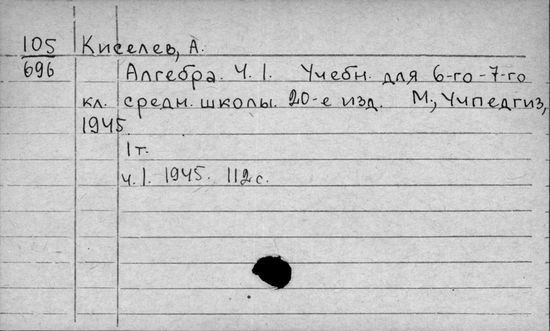 105 Киселев, А.
696 Алгебра. Ч. 1. Учебн. для 6-го-7-го
кл. средн. школы. 20-е изд. М., Учпедгиз,
1945.
1т.
ч.1. 1945. 112 с.